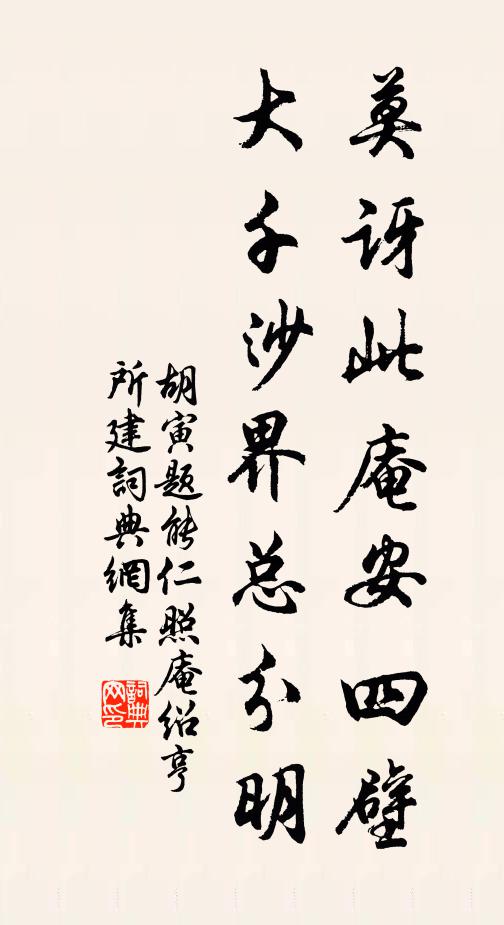 莫訝此庵安四壁
大千沙界总分明
胡寅题能仁照庵绍亨
所建詞典網集
詞典网印